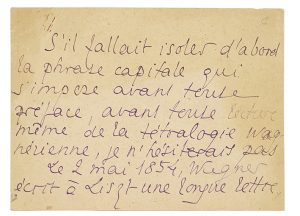 S'il fallait isoler d'abord
la phrase capitale qui
s'impose avant toute
préface, avant toute lecture
même de la tétralogie Wag
nérienne, je n'hésiterais pas
Le 2 mai 1854, Wagner
écrit à Liszt une longue lettre